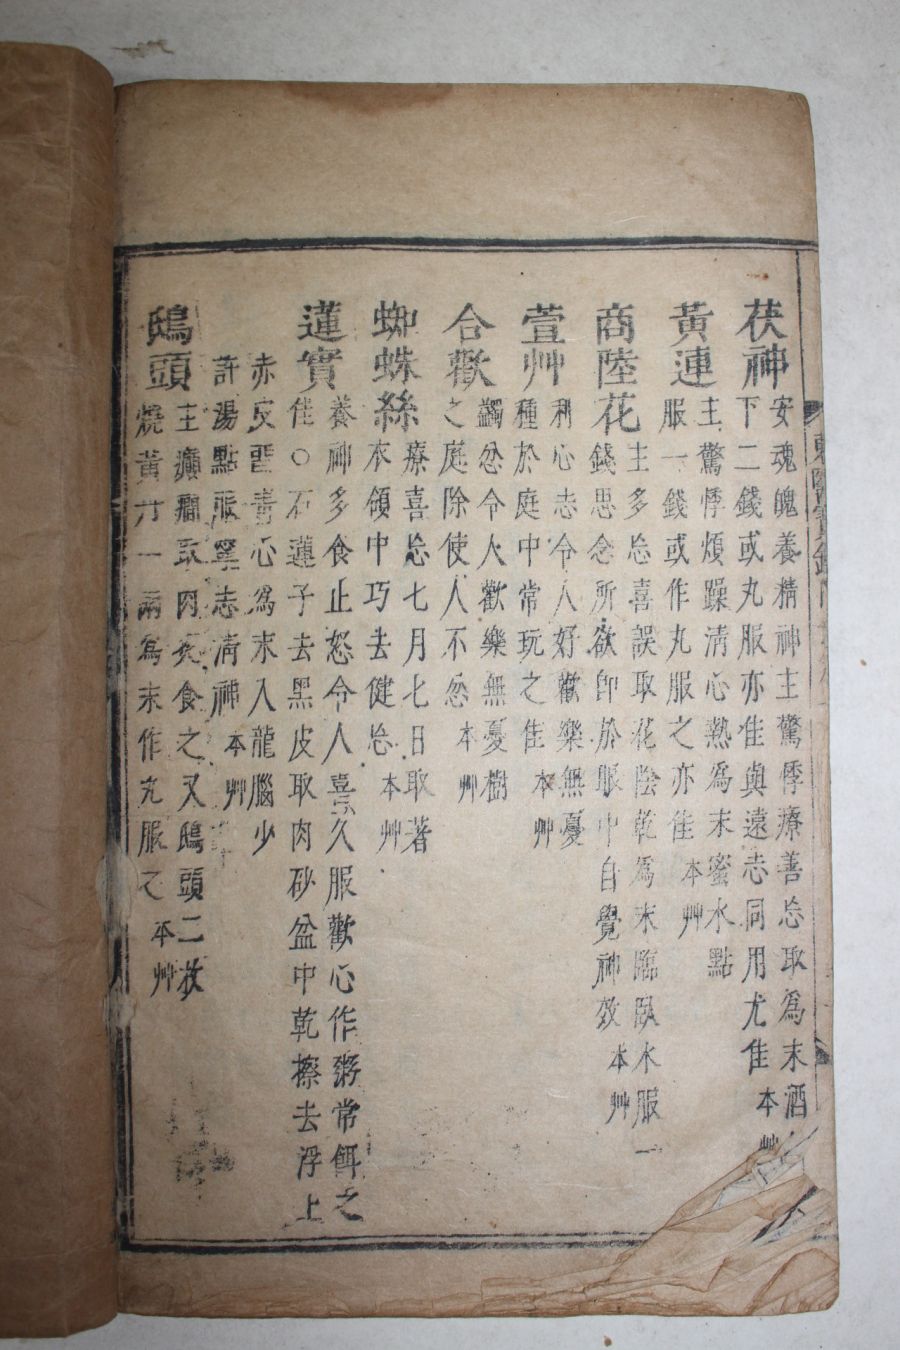 茯神
安魂魄養精神主驚悸療善忘取爲末酒
下二錢或丸服亦佳與遠志同用尤佳本艸
黃連
主驚悸煩躁淸心熱爲末蜜水點
服一錢或作丸服之亦佳本艸
商陸花
主多忘喜誤取花陰乾爲末臨臥水服一
錢思念所欲卽於眠中自覺神效本艸
萱艸
利心志令人好歡樂無憂
種於庭中常玩之佳本艸
合歡
蠲忿令人歡樂無憂樹
之庭除使人不忿本艸
蜘蛛絲
療喜忘七月七日取著
衣領中巧去健忘本艸
蓮實
養神多食止怒令人喜久服歡心作粥常餌之
佳○石蓮子去黑皮取肉砂盆中乾擦去浮上
赤皮留靑心爲末入龍腦少
許湯點服寧志淸神本艸
鴟頭
主癲癎取肉炙食之又鴟頭二枚
燒黃丹一兩爲末作丸服之本艸